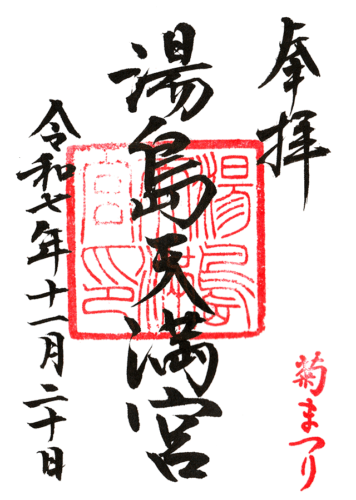 奉拝
湯島天満宮
湯島天満宮印
令和七年十一月二十日
菊まつり